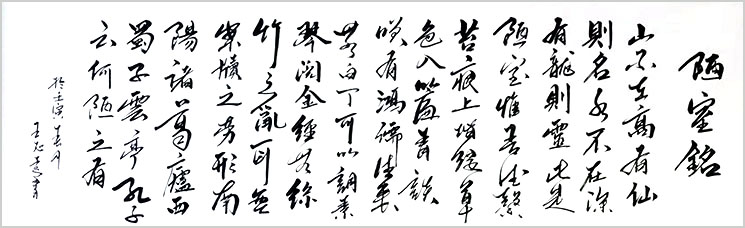 陋室銘
山不在高有仙
則名水不在深
有龍則靈此是
陋室惟吾德馨
苔痕上階綠草
色入簾青談
咲有鴻儒往來
無白丁可以調素
琴閱金經無絲
竹之亂耳無
案牘之勞形南
陽諸葛廬西
蜀子雲亭孔子
云何陋之有